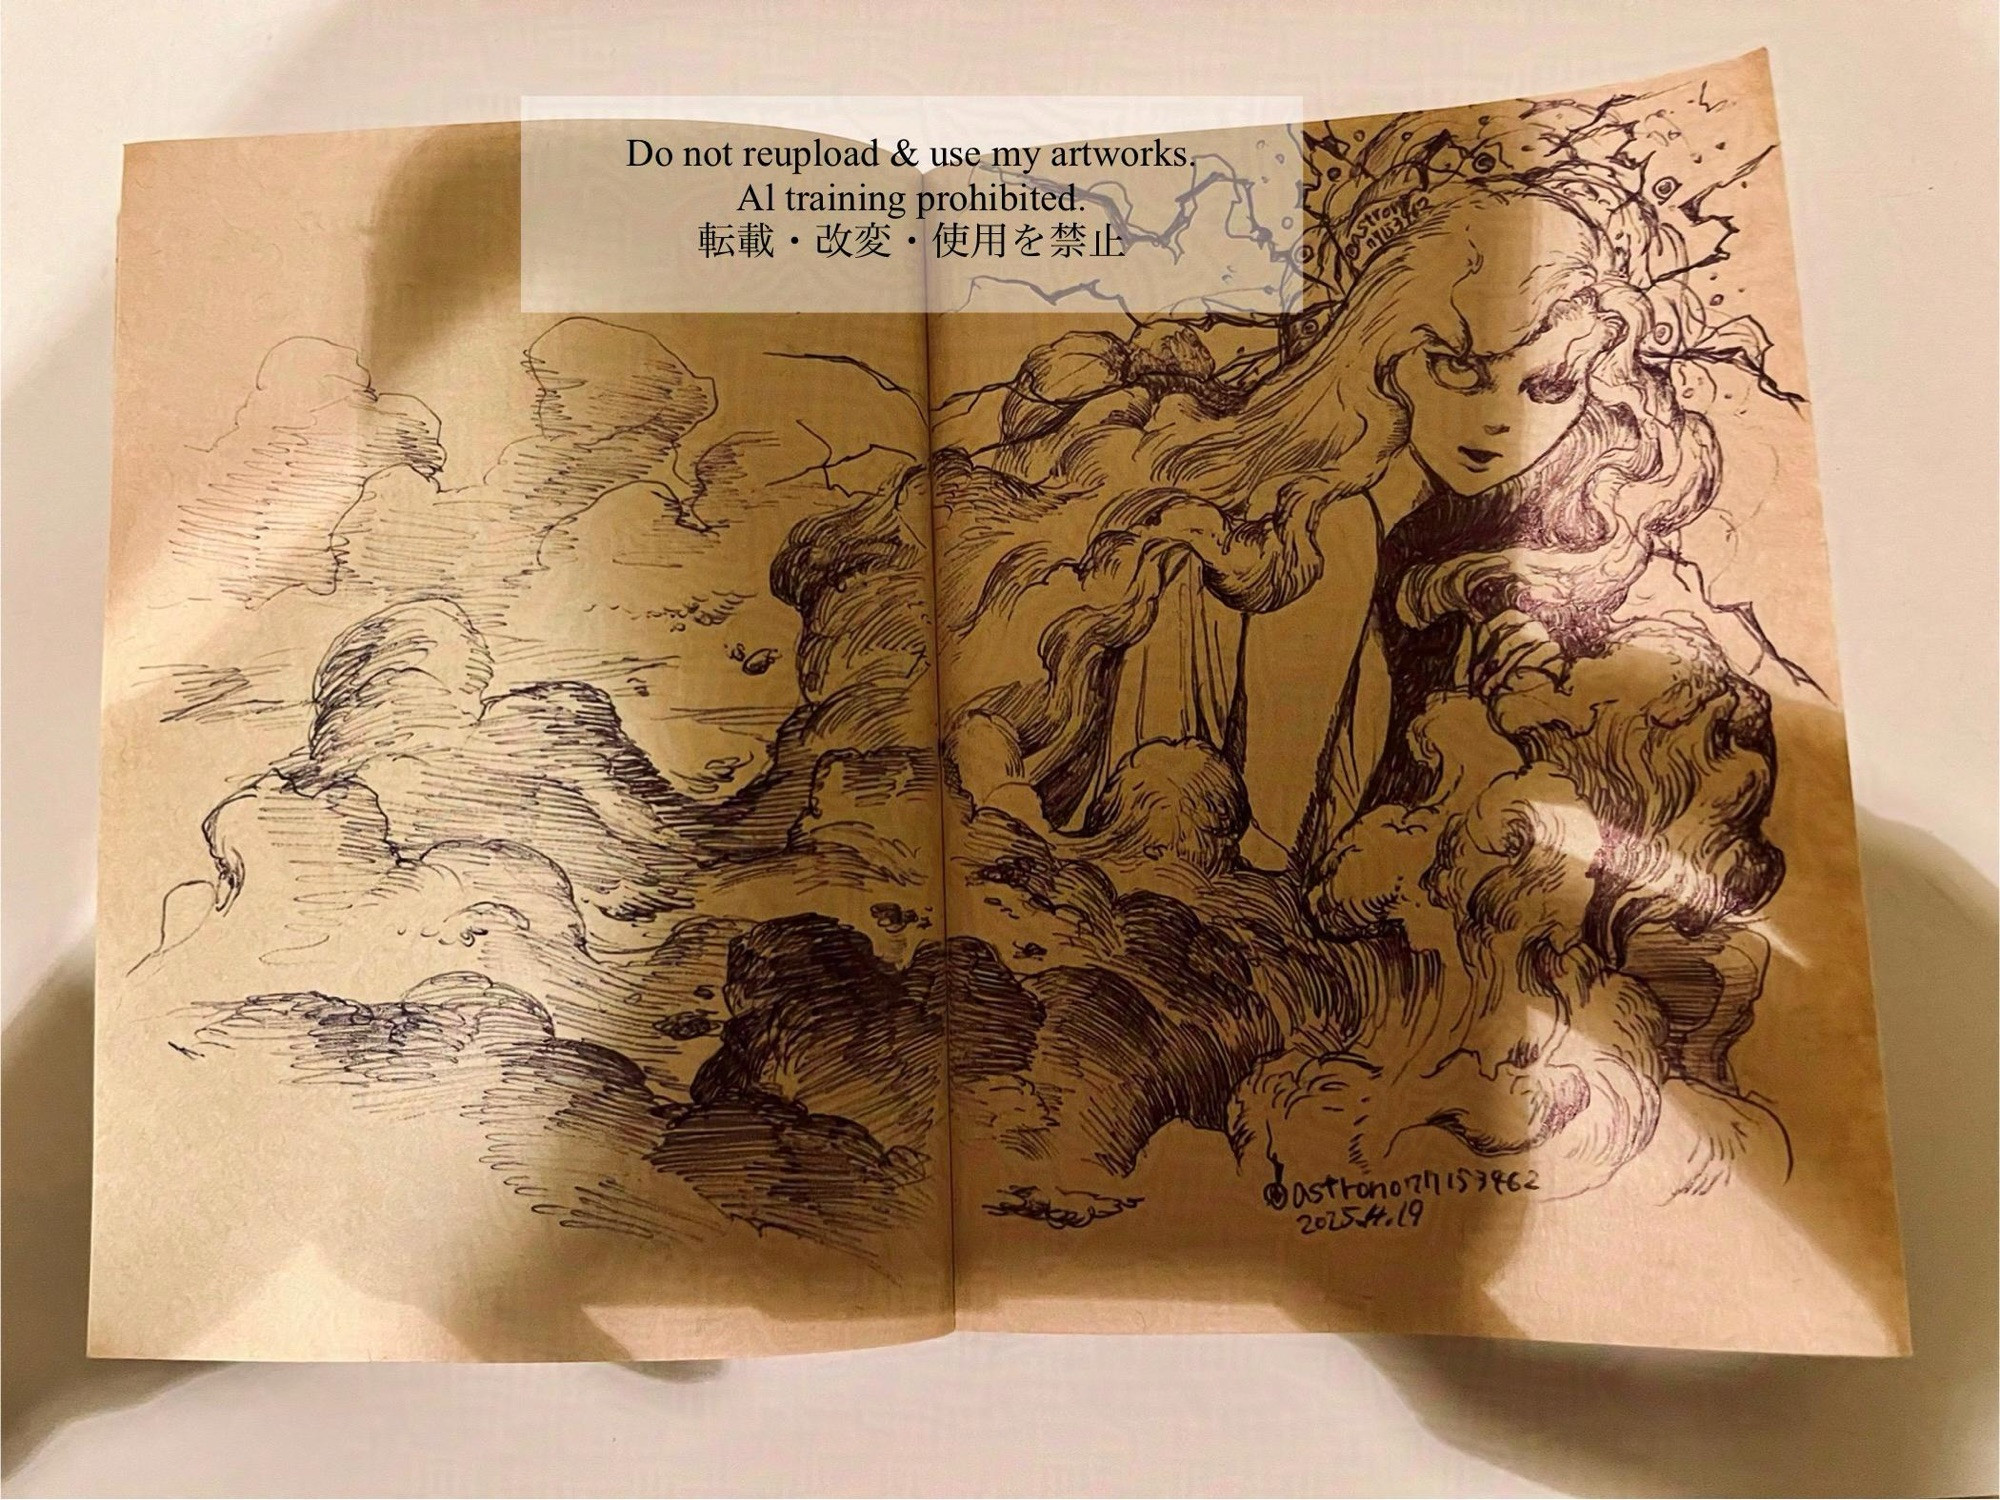 Do not reupload & use my artworks.
AI training prohibited.
転載・改変・使用を禁止
@astrono77153462
@astrono77153462
2025.4.19